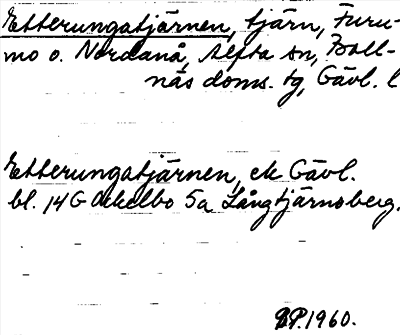 Etterungatjärnen, tjärn, Furu-
mo o. Nordanå, Alfta sn, Boll-
näs doms. tg, Gävl. l
Etterungatjärnen, ek Gävl.
bl. 14G Ockelbo 5a Långtjärnsberg.
1960.